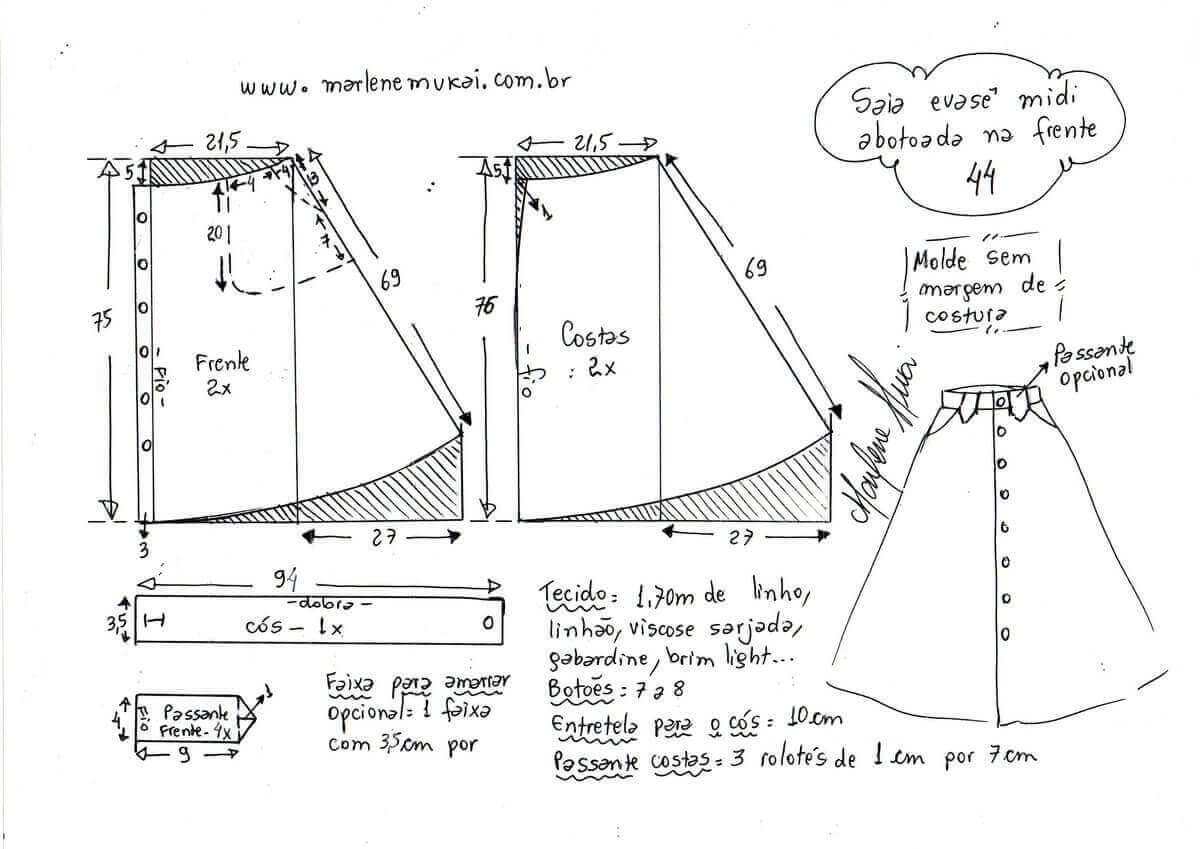 www.marlenemukai.com.br
Saia evasê midi
abotoada na frente
44
21,5
5
4
4
13
20
7
69
75
Frente
2x
Fio
3
27
21,5
5
1
69
76
Costas
2x
Fio
27
Molde sem
margem de
costura
Marlene Mukai
Passante
opcional
94
3,5
-dobra-
cós - 1x
4
Fio
Passante
Frente - 4x
1
9
Faixa para amarrar
Opcional = 1 faixa
com 3,5cm por
Tecido = 1,70m de linho,
linhão, viscose sarjada,
gabardine, brim light...
Botões = 7 a 8
Entretela para o cós = 10cm
Passante costas = 3 rolotés de 1cm por 7cm